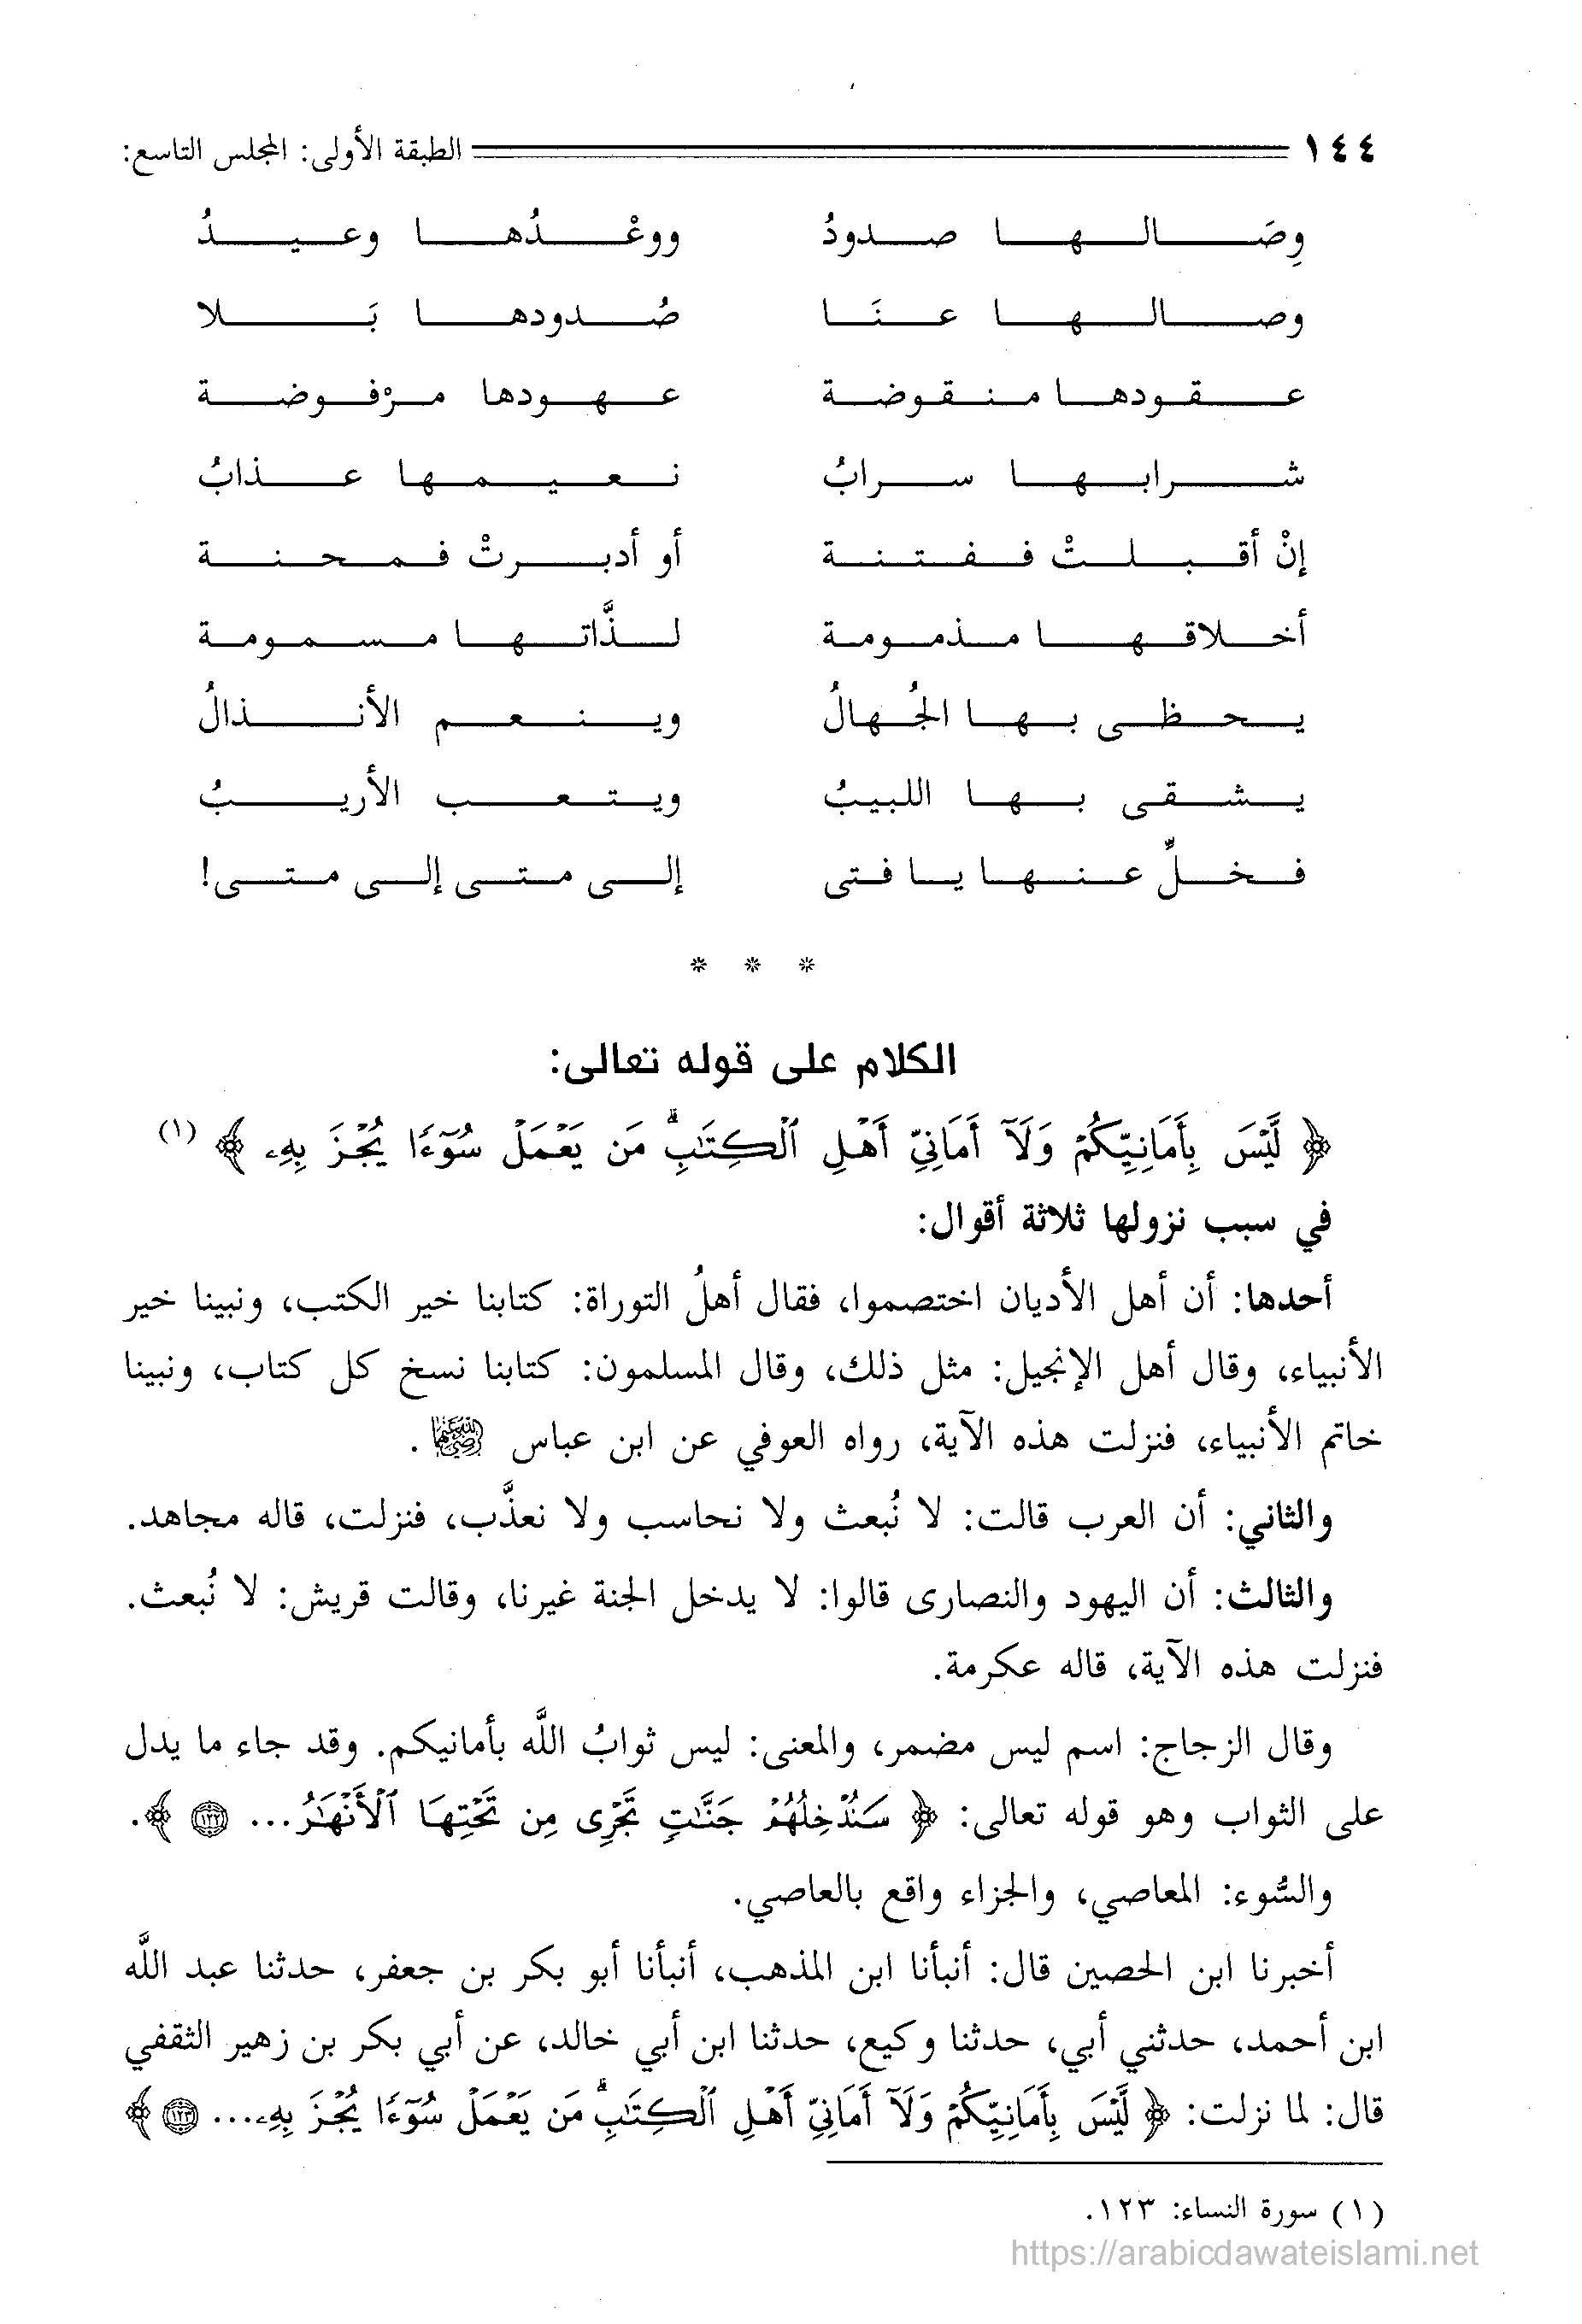 ١٤٤ الطبقة الأولى: المجلس التاسع:
وِصَالها صدودُ ووعْدُها وعيدُ
وصالها عنَا صُدودها بَلا
عقودها منقوضة عهودها مرْفوضة
شرابها سرابُ نعيمها عذابُ
إنْ أقبلتْ ففتنة أو أدبرتْ فمحنة
أخلاقها مذمومة لذَّاتها مسمومة
يحظى بها الجُهالُ وينعم الأنذالُ
يشقى بها اللبيبُ ويتعب الأريبُ
فخلِّ عنها يا فتى إلى متى إلى متى!
* * *
الكلام على قوله تعالى:
﴿ لَّيْسَ بِأَمَانِيِّكُمْ وَلَآ أَمَانِيِّ أَهْلِ ٱلْكِتَٰبِۗ مَن يَعْمَلْ سُوٓءًا يُجْزَ بِهِۦ ﴾ (١)
في سبب نزولها ثلاثة أقوال:
أحدها: أن أهل الأديان اختصموا، فقال أهلُ التوراة: كتابنا خير الكتب، ونبينا خير
الأنبياء، وقال أهل الإنجيل: مثل ذلك، وقال المسلمون: كتابنا نسخ كل كتاب، ونبينا
خاتم الأنبياء، فنزلت هذه الآية، رواه العوفي عن ابن عباس رضي الله عنهما .
والثاني: أن العرب قالت: لا نُبعث ولا نحاسب ولا نعذَّب، فنزلت، قاله مجاهد.
والثالث: أن اليهود والنصارى قالوا: لا يدخل الجنة غيرنا، وقالت قريش: لا نُبعث.
فنزلت هذه الآية، قاله عكرمة.
وقال الزجاج: اسم ليس مضمر، والمعنى: ليس ثوابُ اللَّه بأمانيكم. وقد جاء ما يدل
على الثواب وهو قوله تعالى: ﴿ سَنُدْخِلُهُمْ جَنَّٰتٍ تَجْرِى مِن تَحْتِهَا ٱلْأَنْهَٰرُ... ١٢٢ ﴾.
والسُّوء: المعاصي، والجزاء واقع بالعاصي.
أخبرنا ابن الحصين قال: أنبأنا ابن المذهب، أنبأنا أبو بكر بن جعفر، حدثنا عبد اللَّه
ابن أحمد، حدثني أبي، حدثنا وكيع، حدثنا ابن أبي خالد، عن أبي بكر بن زهير الثقفي
قال: لما نزلت: ﴿ لَّيْسَ بِأَمَانِيِّكُمْ وَلَآ أَمَانِيِّ أَهْلِ ٱلْكِتَٰبِۗ مَن يَعْمَلْ سُوٓءًا يُجْزَ بِهِۦ... ١٢٣ ﴾
(١) سورة النساء: ١٢٣.
https://arabicdawateislami.net